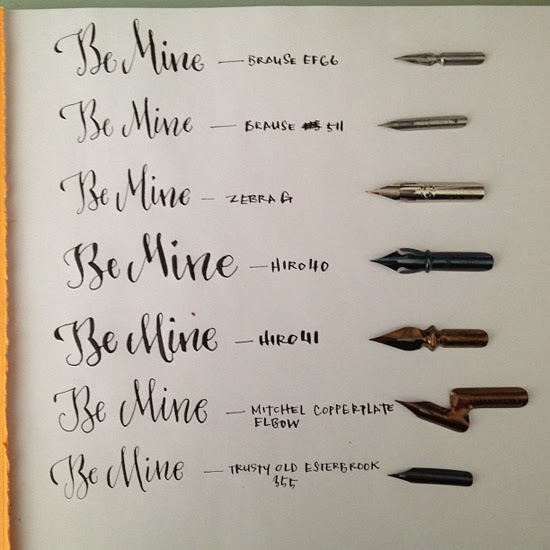 Be Mine — BRAUSE EF66
Be Mine — BRAUSE 511
Be Mine — ZEBRA G
Be Mine — HIRO 40
Be Mine — HIRO 41
Be Mine — MITCHEL COPPERPLATE
ELBOW
Be Mine — TRUSTY OLD ESTERBROOK
355